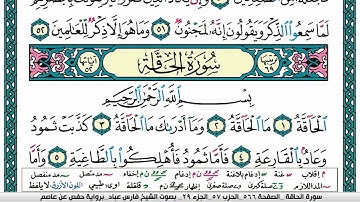 لَمَّا سَمِعُوا۟ ٱلذِّكْرَ وَيَقُولُونَ إِنَّهُۥ لَمَجْنُونٌ ٥١ وَمَا هُوَ إِلَّا ذِكْرٌ لِّلْعَٰلَمِينَ ٥٢
سُورَةُ الحَاقَّة
بِسْمِ ٱللَّهِ ٱلرَّحْمَٰنِ ٱلرَّحِيمِ
ٱلْحَآقَّةُ ١ مَا ٱلْحَآقَّةُ ٢ وَمَآ أَدْرَىٰكَ مَا ٱلْحَآقَّةُ ٣ كَذَّبَتْ ثَمُودُ
وَعَادٌۢ بِٱلْقَارِعَةِ ٤ فَأَمَّا ثَمُودُ فَأُهْلِكُوا۟ بِٱلطَّاغِيَةِ ٥ وَأَمَّا
سورة الحاقة الصفحة ٥٦٦ الجزء ٢٩ بصوت الشيخ فارس عباد برواية حفص عن عاصم